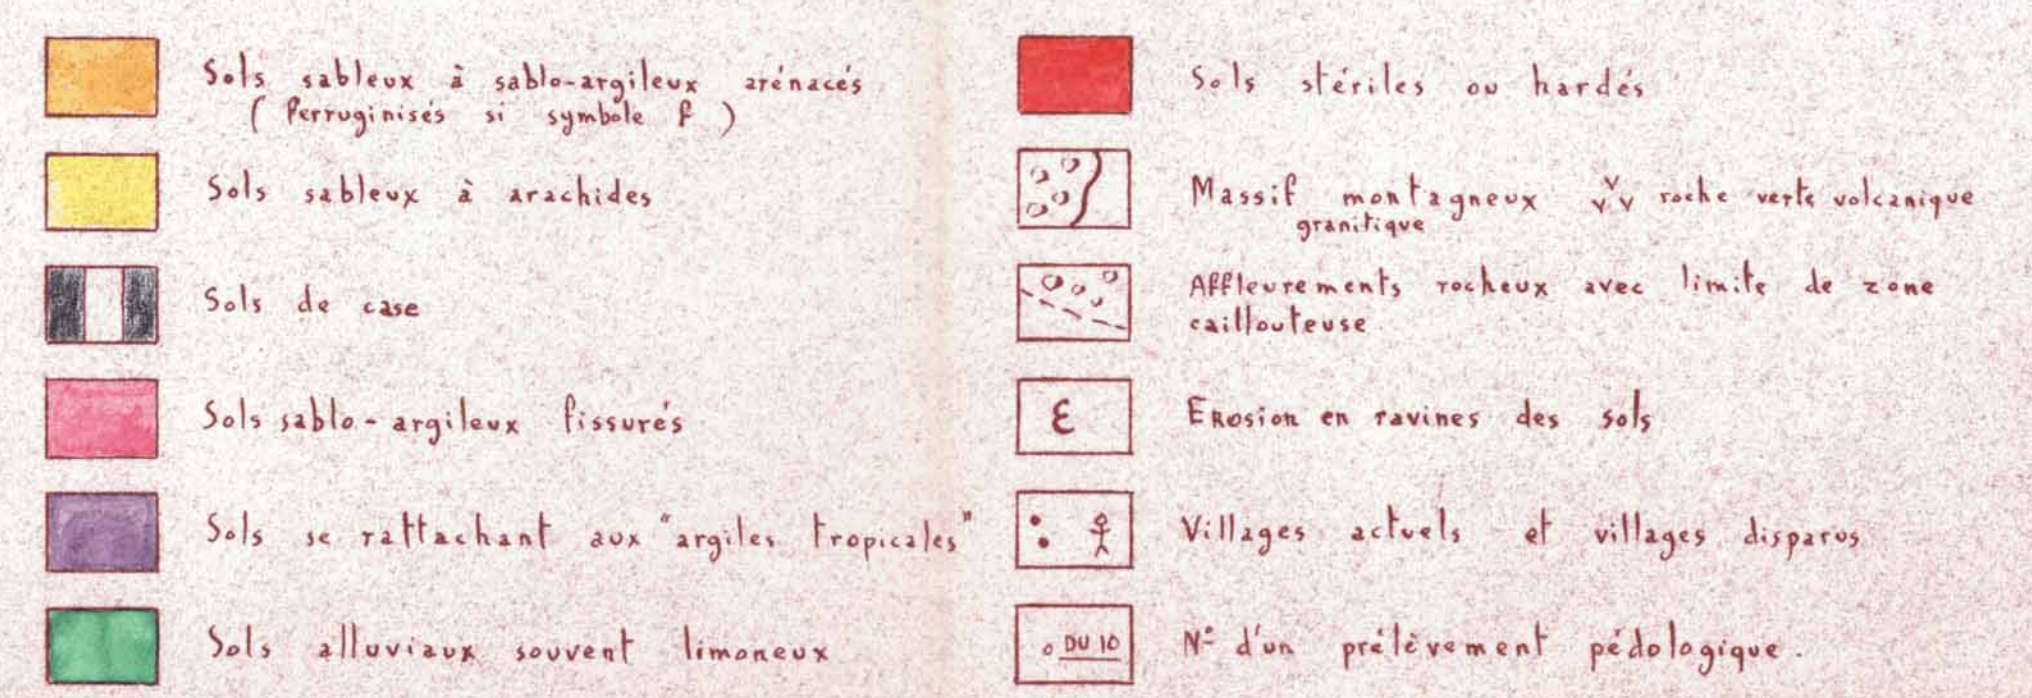 Sols sableux à sablo-argileux arénacés
( Ferruginisés si symbole f )
Sols sableux à arachides
Sols de case
Sols sablo-argileux fissurés
Sols se rattachant aux "argiles tropicales"
Sols alluviaux souvent limoneux
Sols stériles ou hardés
Massif montagneux v v v roche verte volcanique
granitique
Affleurements rocheux avec limite de zone
caillouteuse
ε Erosion en ravines des sols
Villages actuels et villages disparus
o DU 10 N° d'un prélèvement pédologique.